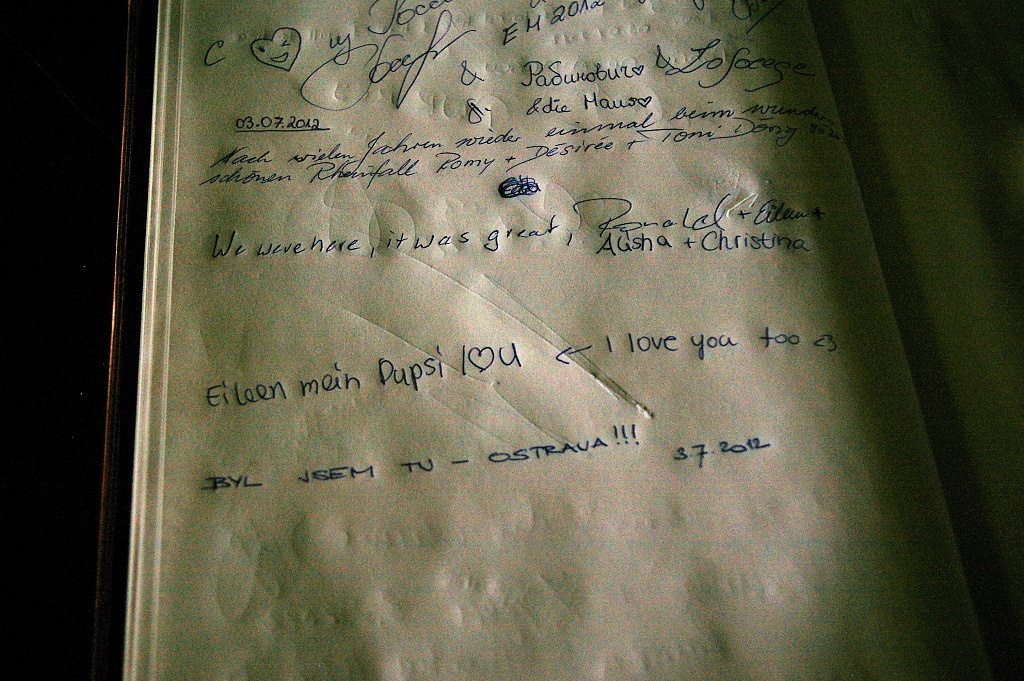 EM 2012
& Рабинович &
& die Maus
03.07.2012
Nach vielen Jahren wieder einmal beim wunder
schönen Rheinfall Romy + Désirée + Toni
We were here, it was great, Ronald + Eileen +
Alisha + Christina
Eileen mein Pupsi I♡U ← I love you too <3
BYL JSEM TU - OSTRAVA!!! 3.7.2012